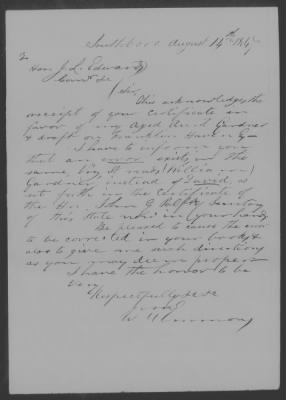 Southboro August 14th 184
To
Hon J. L. Edwards
Com &c
Sir,
This acknowledges the
receipt of your Certificate in
favor of my Aged Aunt Gardner
& draft on Franklin Haven
I have to inform you
that an error exists in the
same, by it reads (William)
Gardner, instead of David, as
set forth in the Certificate of
the Hon. John G. Palfrey Secretary
of this State now in your hands
Be pleased to cause the error
to be corrected in your books &
also to give me such directions
as you may deem proper
I have the honor to be
Very
Respectfully &c &c